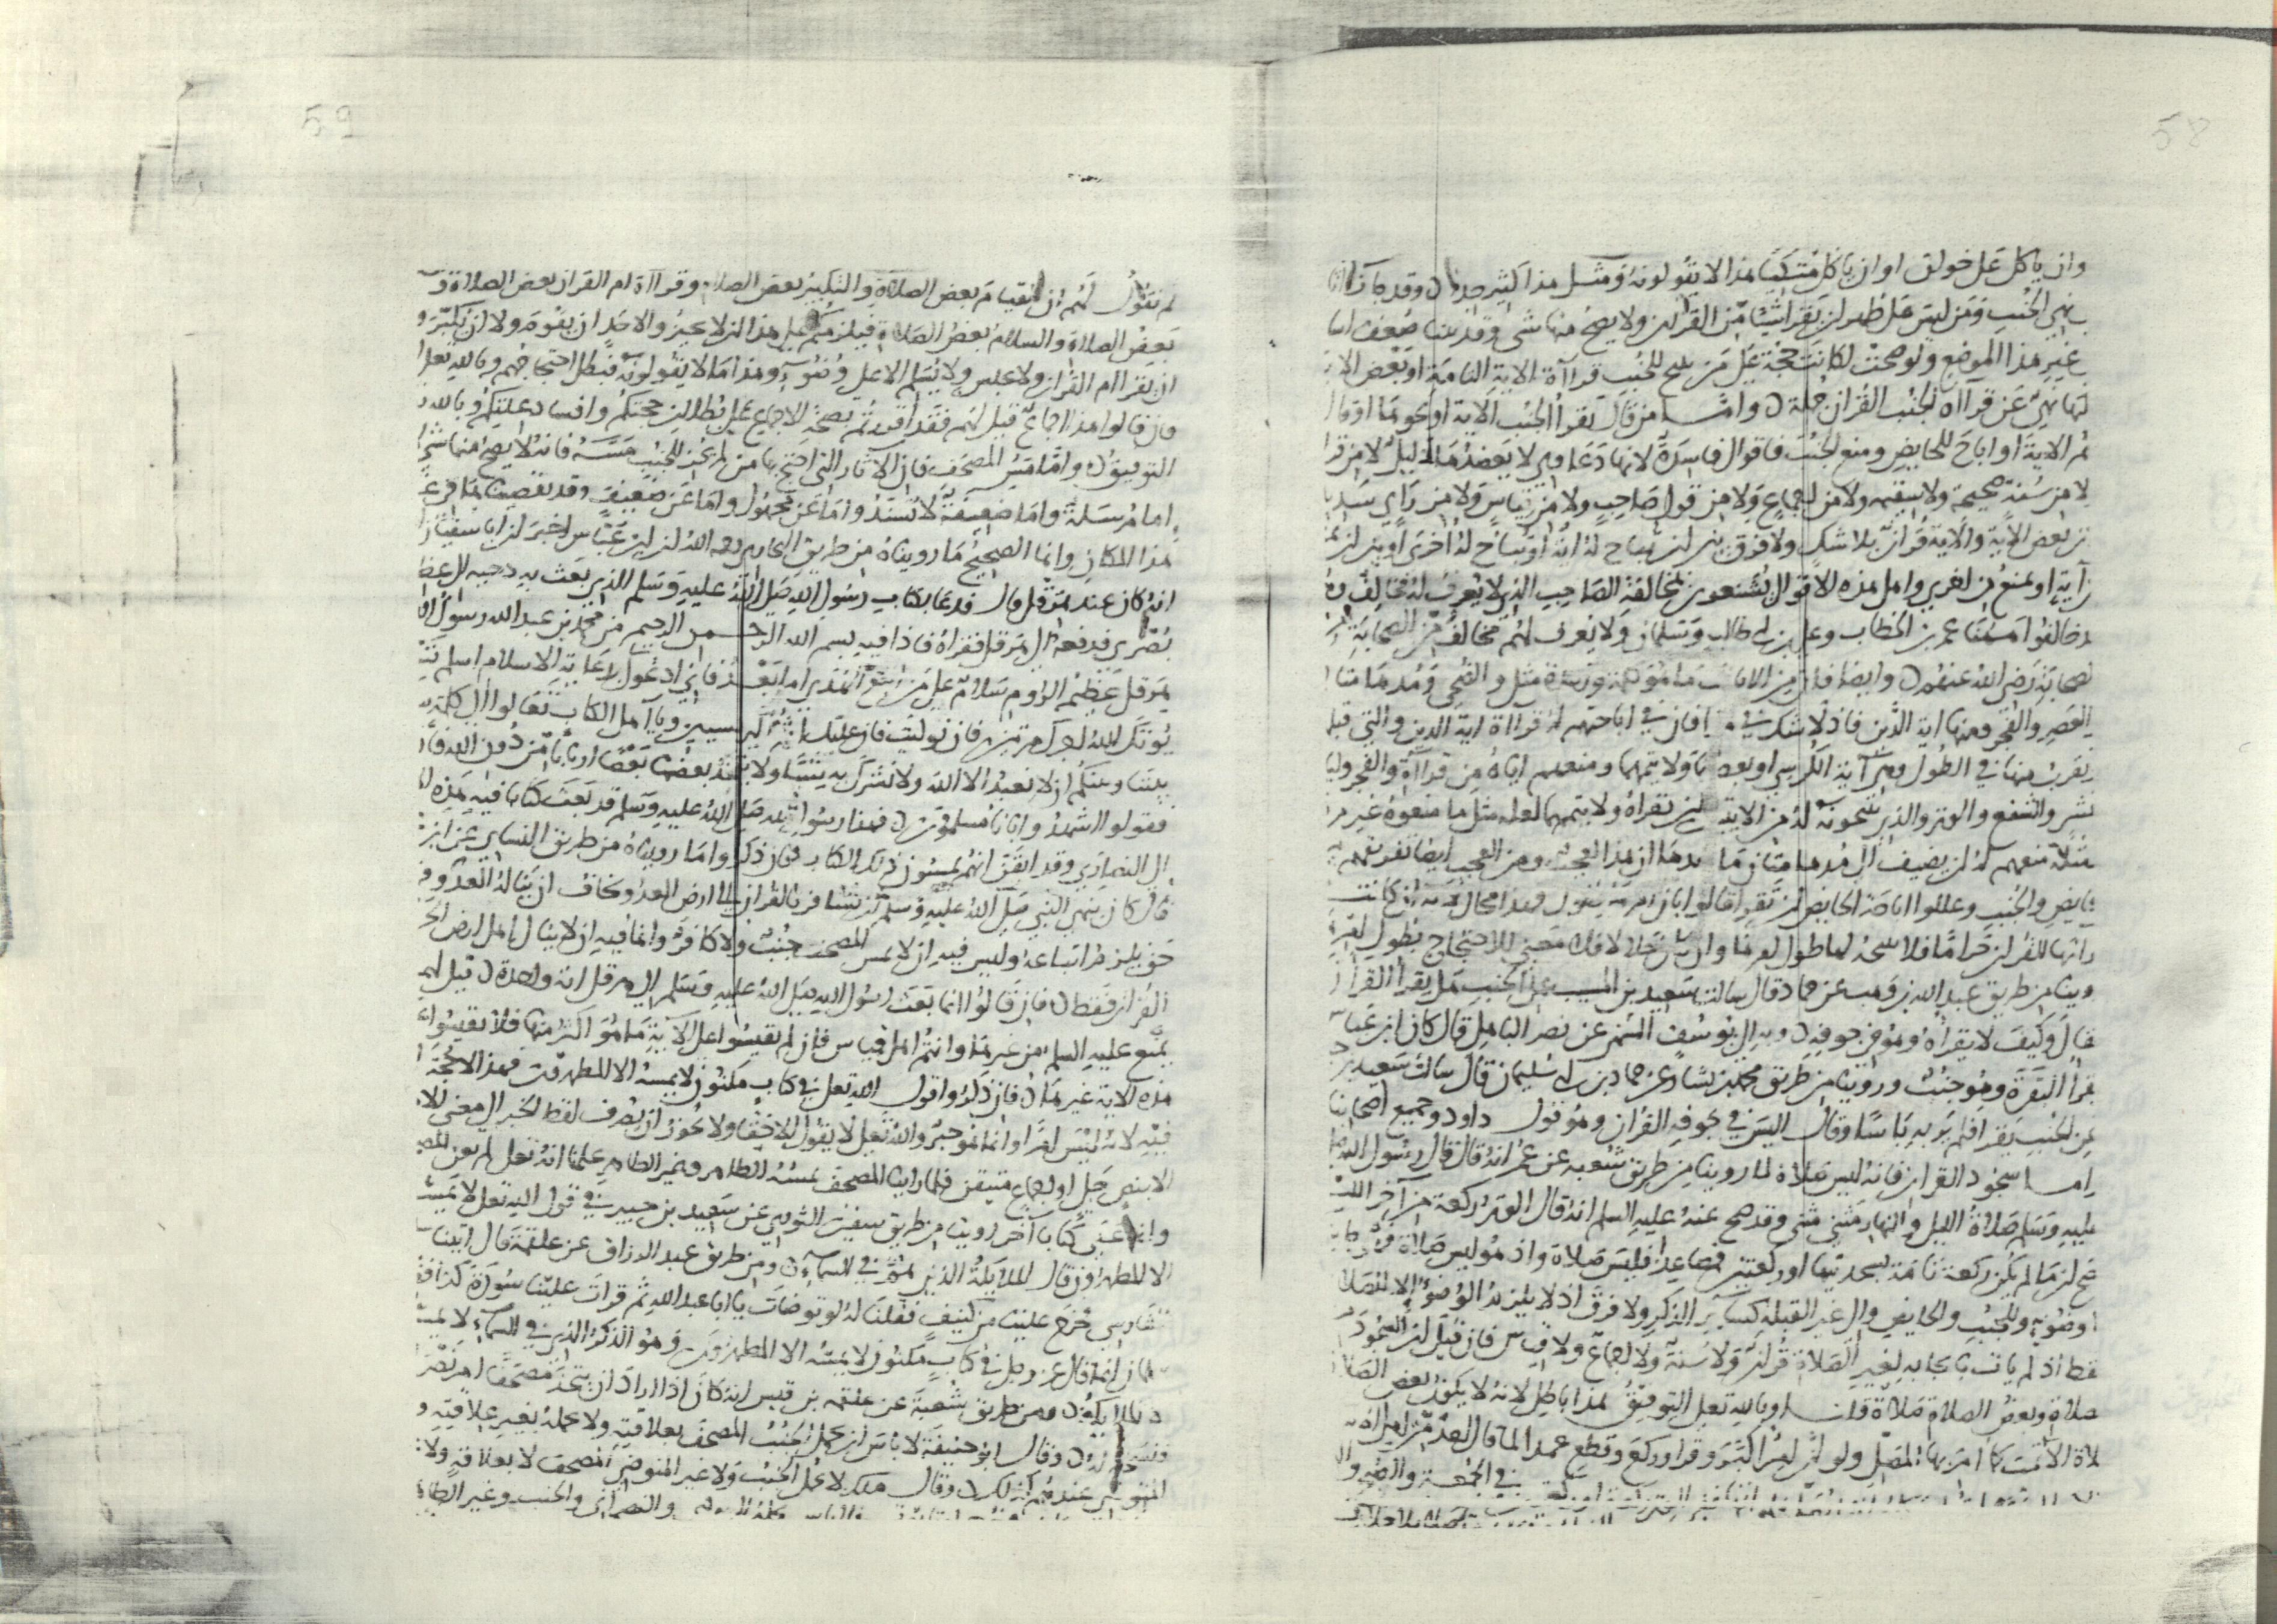 58
وان ياكل على خوان او ان ياكل متكئا هذا لا يقولونه ومثل هذا كثير جدا وقد جات اثا
بنهي الجنب ومن ليس على طهر ان يقرا شيئا من القران ولا يصح منها شي وقد بينا ضعف اسا
غير هذا الموضع ولو صحت لكانت حجة على من يبيح للجنب قراة الاية التامة او بعض الاية
لانها نهي عن قراة الجنب القران جملة واما من قال يقرا الجنب الاية او نحوها او قال
يتم الاية او اباح للحايض ومنع الجنب فاقوال فاسدة لانها دعاوي لا يعضدها دليل لا من قرا
لا من سنة صحيحة ولا سقيمة ولا من اجماع ولا من قول صاحب ولا من قياس ولا من راي سديد
ن بعض الاية والاية قران بلا شك ولا فرق بين ان تباح له اية او تباح له اخرى او بين ان يمنع
ن اية او يمنع من اخرى واهل هذه الاقوال يشنعون بمخالفة الصاحب الذي لا يعرف له مخالف وه
قد خالفوا هاهنا عمر بن الخطاب وعلي بن ابي طالب وسلمان ولا يعرف لهم مخالف من الصحابة
لصحابة رضي الله عنهم وايضا فان من الايات ما هو كلمة واحدة مثل والضحى ومدهامتان
العصر والفجر ومنها اية الدين فاذ لا شك في هذا فان في اباحتهم له قراة اية الدين والتي قبلها
يقرب منها في الطول او اية الكرسي او بعضها ولا يتمها ومنعهم اياه من قراة والفجر وليا
عشر والشفع والوتر والذي يبيحونه له من الاية ان يقراه ولا يتمها
مثلة منعهم له ان يضيف الى مدهامتان ما بعدها ان هذا لعجب ومن العجب ايضا تفريقهم
حايض والجنب وعللوا اباحة الحايض ان تقرا قالوا بان امرها يطول وهذا محال لانه ان كانت
راتها للقران حراما فلا يبيحه لها طول امرها وان كان حلالا فلا معنى للاحتجاج بطول امرها
وينا من طريق عبد الله بن وهب عن حماد قال سالت سعيد بن المسيب عن الجنب هل يقرا القران
فقال وكيف لا يقراه وهو في جوفه وبه الى يوسف السمتي عن نصر الباهلي قال كان ابن عباس
يقرا البقرة وهو جنب وروينا من طريق محمد بن بشار عن حماد بن ابي سليمان قال سالت سعيد بن
عن الجنب يقرا فلم ير به باسا وقال اليس في جوفه القران وهو قول داود وجميع اصحابنا
واما سجود القران فانه ليس صلاة لما روينا من طريق شعبة عن عمر انه قال قال رسول الله صلى
عليه وسلم صلاة الليل والنهار مثنى مثنى وقد صح عنه عليه السلم انه قال الوتر ركعة من اخر الليل
صح ان ما لم يكن ركعة تامة بسجدتيها او ركعتين فصاعدا فليس صلاة واذ هو ليس صلاة فهو جايز
وضوء وللجنب والحايض والى غير القبلة كساير الذكر ولا فرق اذ لا يلزم الوضوء الا للصلاة
فقط اذ لم يات بايجابه لغير الصلاة قران ولا سنة ولا اجماع ولا قياس فان قيل ان السجود
صلاة وبعض الصلاة صلاة قلنا وبالله تعلى التوفيق هذا باطل لانه لا يكون بعض الصلا
لاة الا تمت كما امر بها المصلي ولو ان امرا كبر وقرا وركع وقطع عمدا لما قال احد من اهل
59
ثم نقول لهم ان القيام بعض الصلاة والتكبير بعض الصلاة وقراة ام القران بعض الصلاة و
بعض الصلاة والسلام بعض الصلاة فيلزمكم على هذا ان لا تجيزوا لاحد ان يقوم ولا ان يكبر و
ان يقرا ام القران ولا يجلس ولا يسلم الا على وضوء وهذا ما لا يقولونه فبطل احتجاجهم وبالله تعلى
فان قالوا هذا اجماع قيل لهم فقد اقررتم بصحة الاجماع على بطلان حجتكم وافساد علتكم وبالله
التوفيق واما مس المصحف فان الاثار التي احتج بها من لم يجز للجنب مسه فانه لا يصح منها شي ا
اما مرسلة واما ضعيفة لا تسند واما عن مجهول واما عن ضعيف وقد تقصيناها في غ
هذا المكان وانما الصحيح ما رويناه من طريق البخاري رحمه الله ان ابن عباس اخبر ان ابا سفين
انه كان عند هرقل قال فدعا بكتاب رسول الله صلى الله عليه وسلم الذي بعث به دحية الى عظ
بصرى فدفعه الى هرقل فقراه فاذا فيه بسم الله الرحمن الرحيم من محمد بن عبد الله رسول ا
هرقل عظيم الروم سلام على من اتبع الهدى اما بعد فاني ادعوك بدعاية الاسلام اسلم تس
يوتك الله اجرك مرتين فان توليت فان عليك اثم اليريسيين ويا اهل الكتاب تعالوا الى كلمة
بيننا وبينكم ان لا نعبد الا الله ولا نشرك به شيئا ولا يتخذ بعضنا بعضا اربابا من دون الله فا
فقولوا اشهدوا بانا مسلمون فهذا رسول الله صلى الله عليه وسلم قد بعث كتابا فيه هذه ا
الى النصارى وقد ايقن انهم يمسون ذلك الكتاب فان ذكروا ما رويناه من طريق النساي عن ابن
قال كان ينهى النبي صلى الله عليه وسلم ان يسافر بالقران الى ارض العدو يخاف ان يناله العدو ف
حق يلزم اتباعه وليس فيه ان لا يمس المصحف جنب ولا كافر وانما فيه ان لا ينال اهل ارض الح
القران فقط فان قالوا انما بعث رسول الله صلى الله عليه وسلم الى هرقل اية واحدة قيل لهم
يمنع عليه السلم من غيرها وانتم اهل قياس فان لم تقيسوا على الاية ما هو اكثر منها فلا تقيسوا ع
هذه الاية غيرها فان ذكروا قول الله تعلى في كتاب مكنون لا يمسه الا المطهرون فهذا لا حجة
فيه لانه ليس امرا وانما هو خبر والله تعلى لا يقول الا حقا ولا يجوز ان يصرف لفظ الخبر الى معنى الا
الا بنص جلي او اجماع متيقن فلما راينا المصحف يمسه الطاهر وغير الطاهر علمنا انه تعلى لم يعن المصح
وانما عنى كتابا اخر روينا من طريق سفين الثوري عن سعيد بن جبير في قول الله تعلى لا يمسه
الا المطهرون قال الملايكة الذين هم في السماء ومن طريق عبد الرزاق عن علقمة قال اتينا سـ
الفارسي فخرج علينا من كنيف فقلنا له لو توضات يا ابا عبد الله ثم قرات علينا سورة كذا فق
سلمان انما قال عز وجل في كتاب مكنون لا يمسه الا المطهرون وهو الذكر الذي في السماء لا يمس
الا الملايكة ومن طريق شعبة عن علقمة بن قيس انه كان اذا اراد ان يتخذ مصحفا امر نصر
فنسخه له وقال ابو حنيفة لا باس ان يحمل الجنب المصحف بعلاقته ولا يحمله بغير علاقته و
المتوضي عندهم كذلك وقال ملك لا يحمل الجنب ولا غير المتوضي المصحف لا بعلاقة ولا